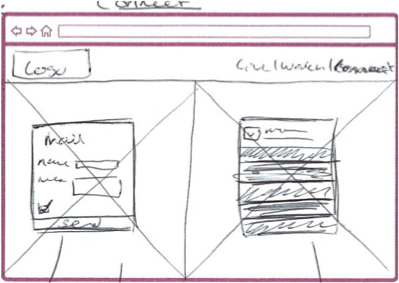 Connect
Logo
Live/Watch/Connect
Mail
name
send